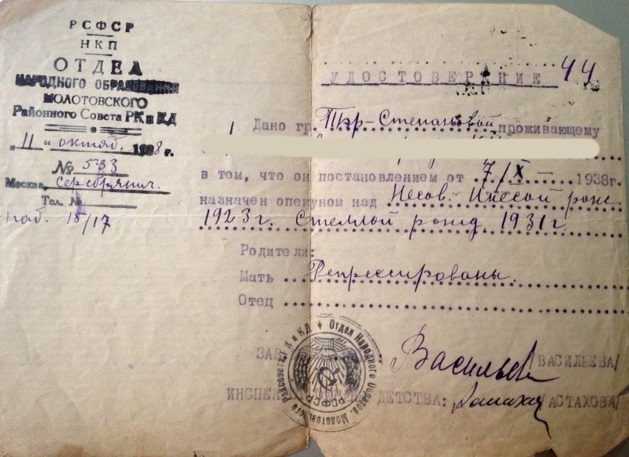 РСФСР
НКП
ОТДЕЛ
НАРОДНОГО ОБРАЗОВАНИЯ
МОЛОТОВСКОГО
Районного Совета РК и КД
"11" октяб. 1938 г.
№ 533
Москва, Серебрянич.
Тел. №
наб. 15/17
УДОСТОВЕРЕНИЕ 44
Дано гр. Тэр-Степановой проживающему
в том, что он постановлением от 7/X – 1938г.
назначен опекуном над Инесой рожд
1923 г. Стеллой рожд 1931 г
Родители:
Мать Репрессированы.
Отец
ЗАВ Васильев /ВАСИЛЬЕВА/
ИНСПЕК ДЕТСТВА: /АСТАХОВА/
Отдел Народного Образов. Молотовского Райсовета РК и КД
РСФСР